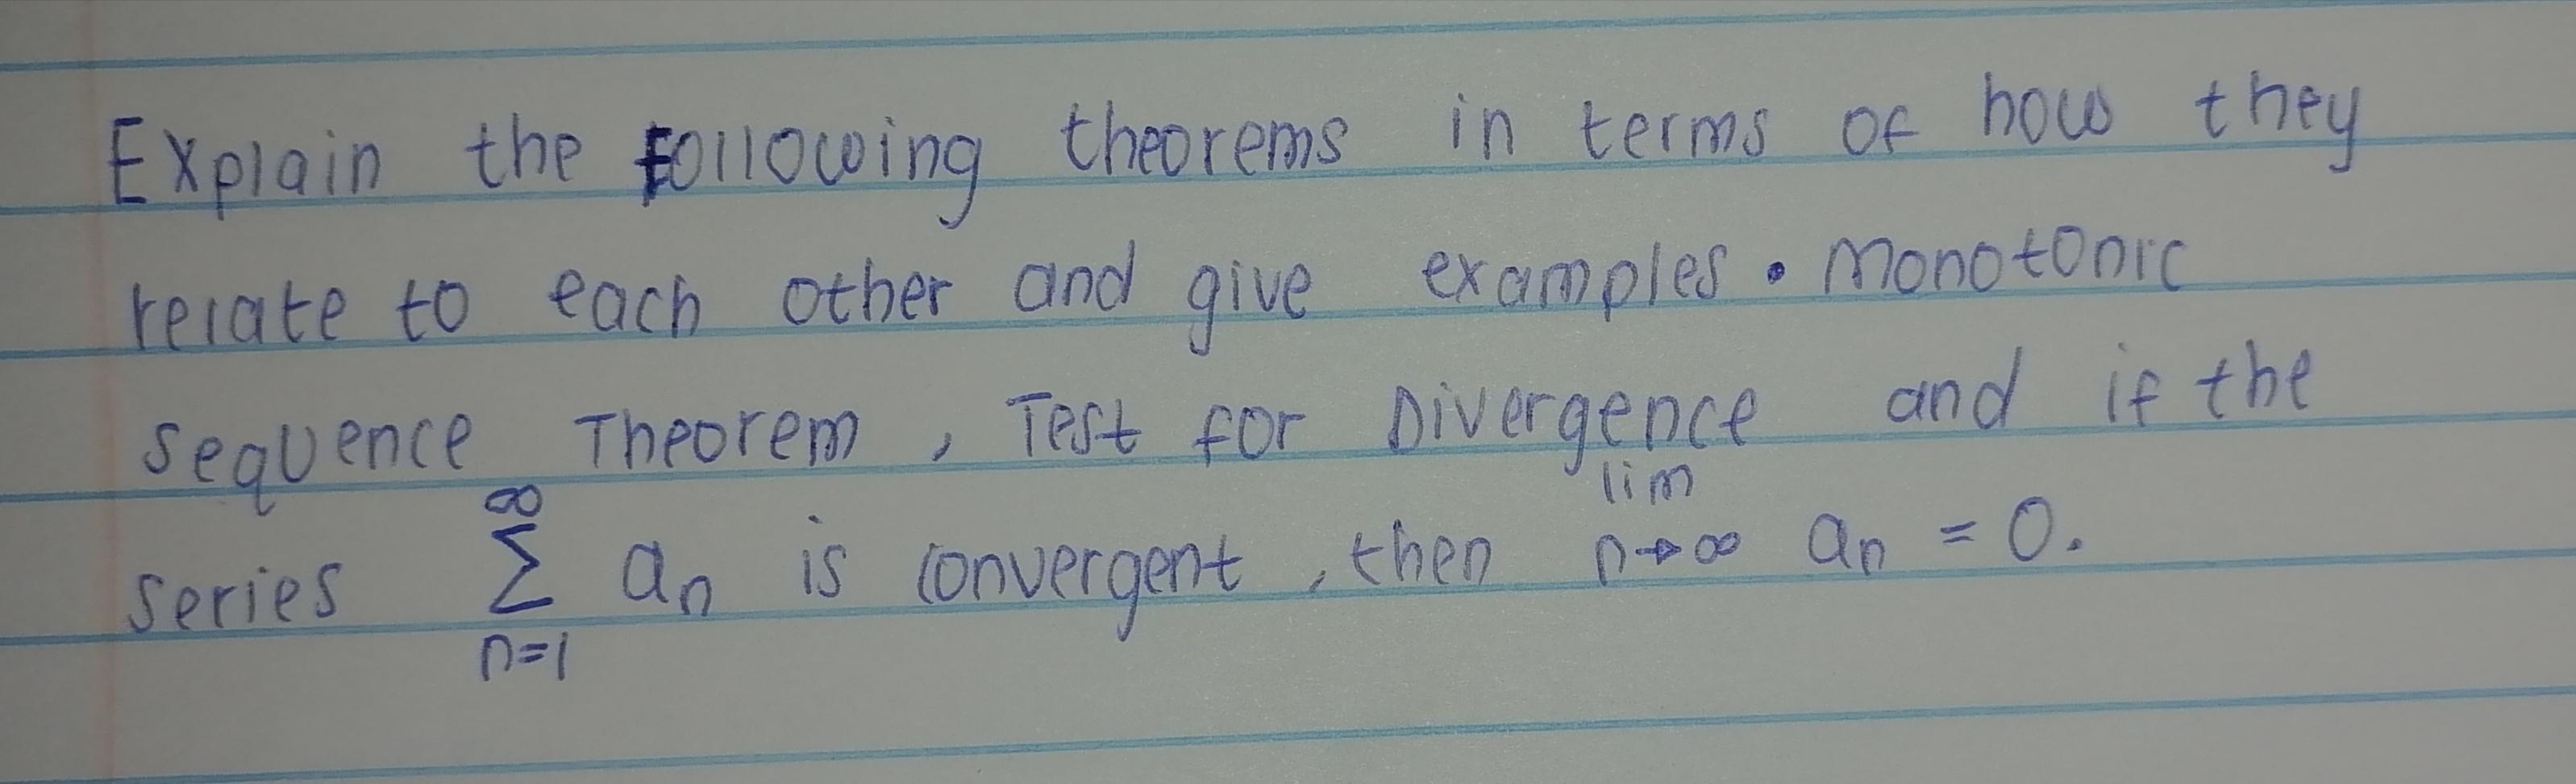 Explain the following theorems in terms of how they
relate to each other and give examples. Monotonic
sequence Theorem, Test for Divergence and if the
series ∑_{n=1}^{∞} a_n is convergent, then lim_{n→∞} a_n = 0.